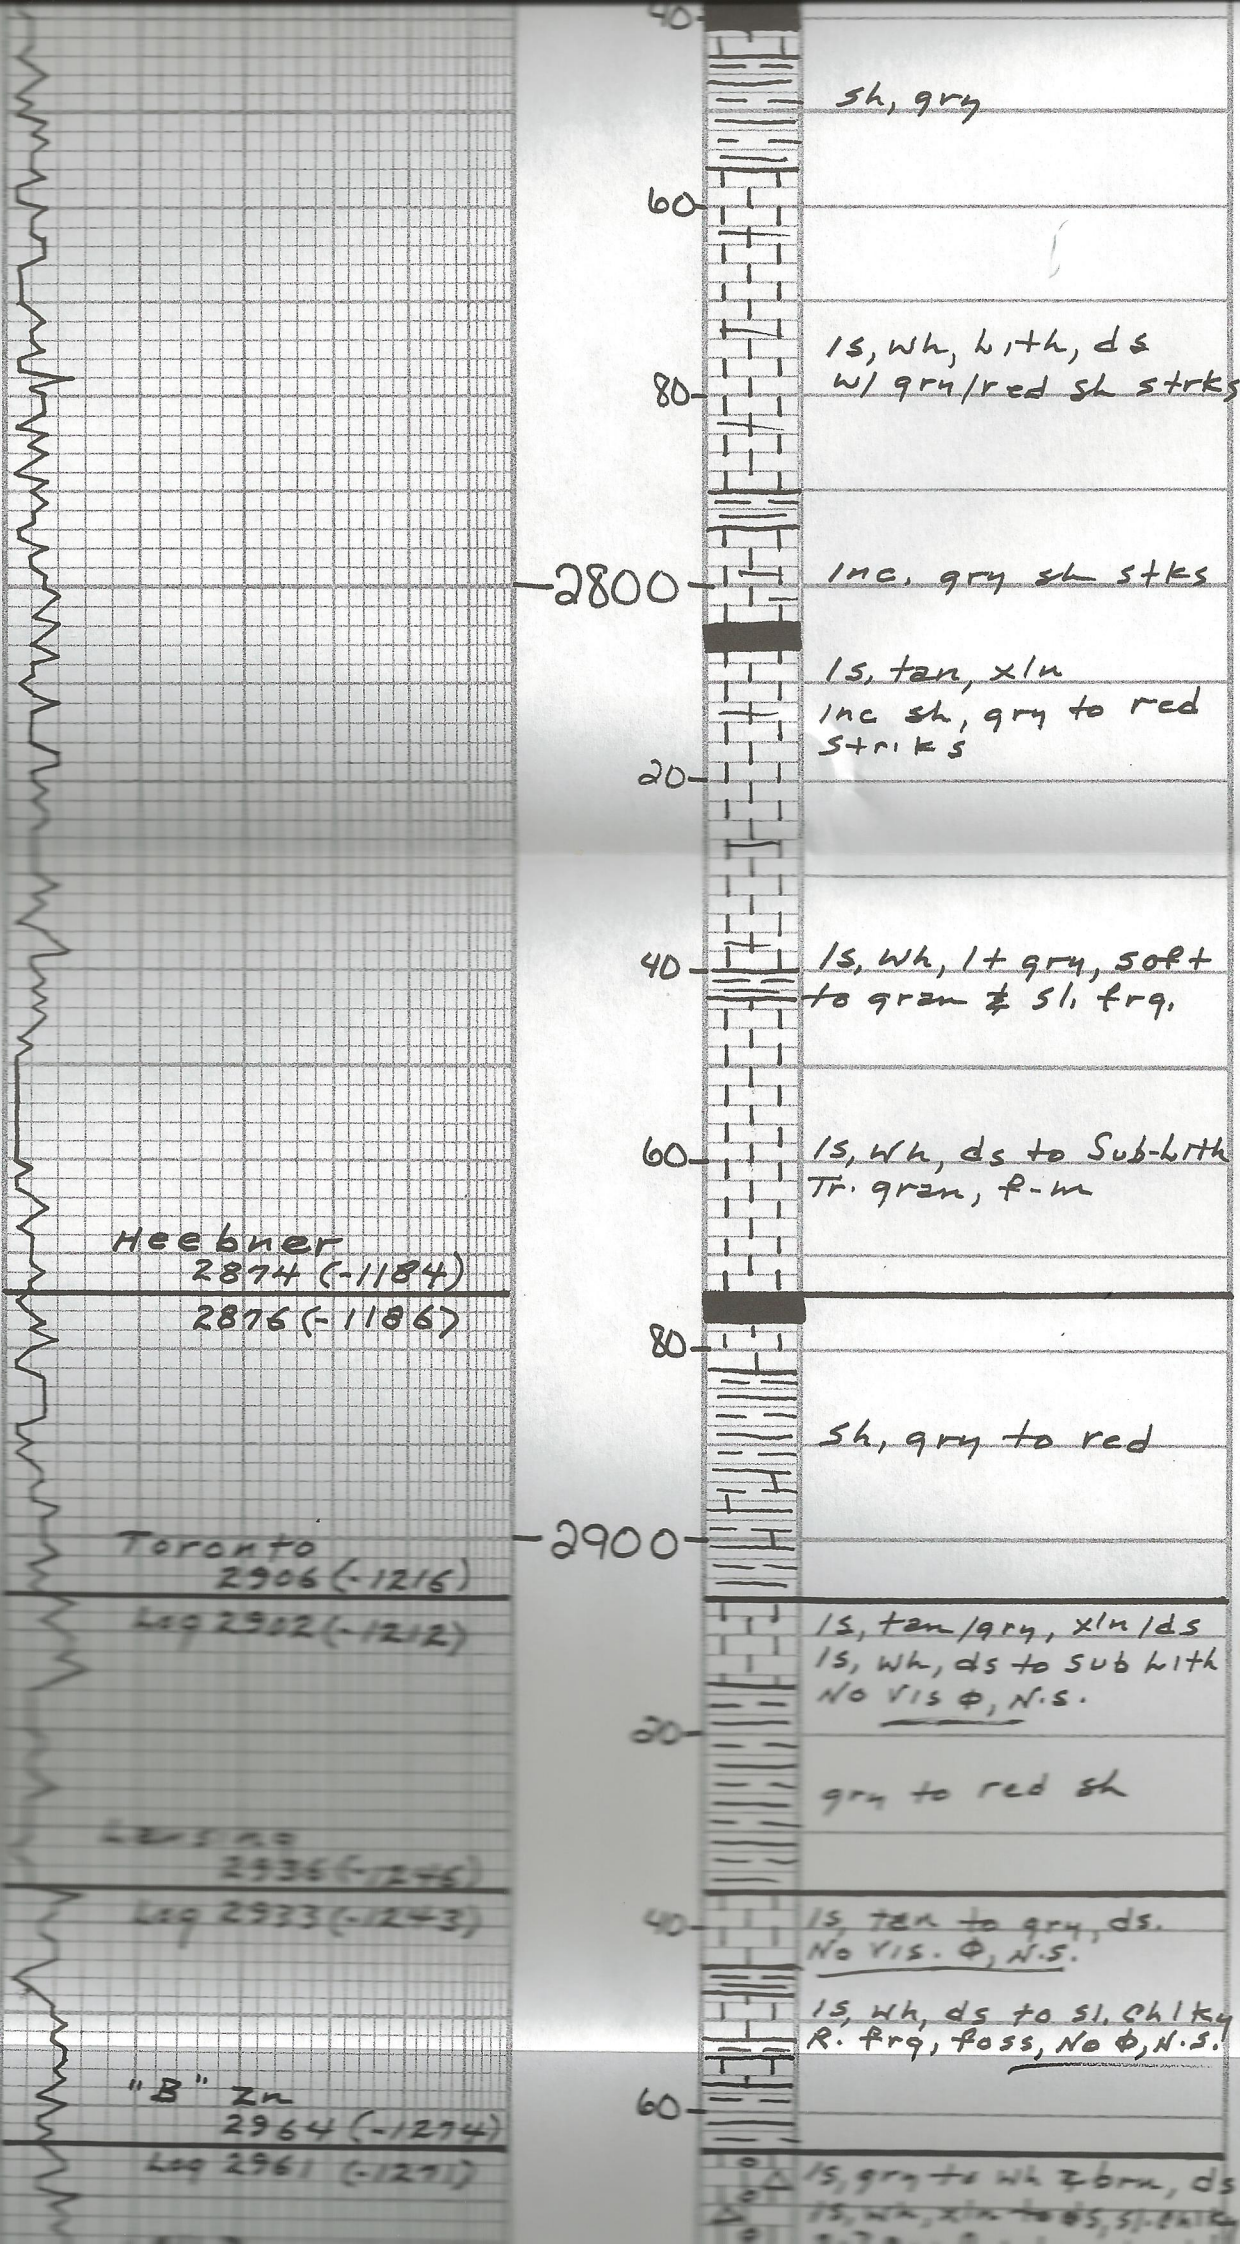 40
sh, gry
60
ls, wh, Lith, ds
w/ gry/red sh strks
80
2800
Inc. gry sh stks
ls, tan, xln
Inc sh, gry to red
strIks
20
40
ls, wh, lt gry, soft
to gran & sl. frg.
60
ls, wh, ds to Sub-Lith
Tr. gran, f-m
Heebner
2874 (-1184)
2876 (-1186)
80
sh, gry to red
2900
Toronto
2906 (-1216)
Log 2902 (-1212)
ls, tan/gry, xln/ds
ls, wh, ds to sub Lith
No Vis Φ, N.S.
20
gry to red sh
Lansing
2936 (-1246)
Log 2933 (-1243)
40
ls, tan to gry, ds.
No Vis. Φ, N.S.
ls, wh, ds to sl. Chlky
R. frg, foss, No Φ, N.S.
60
"B" Zn
2964 (-1274)
Log 2961 (-1271)
ls, gry to wh & brn, ds
ls, wh, xln to ds, sl. chlky